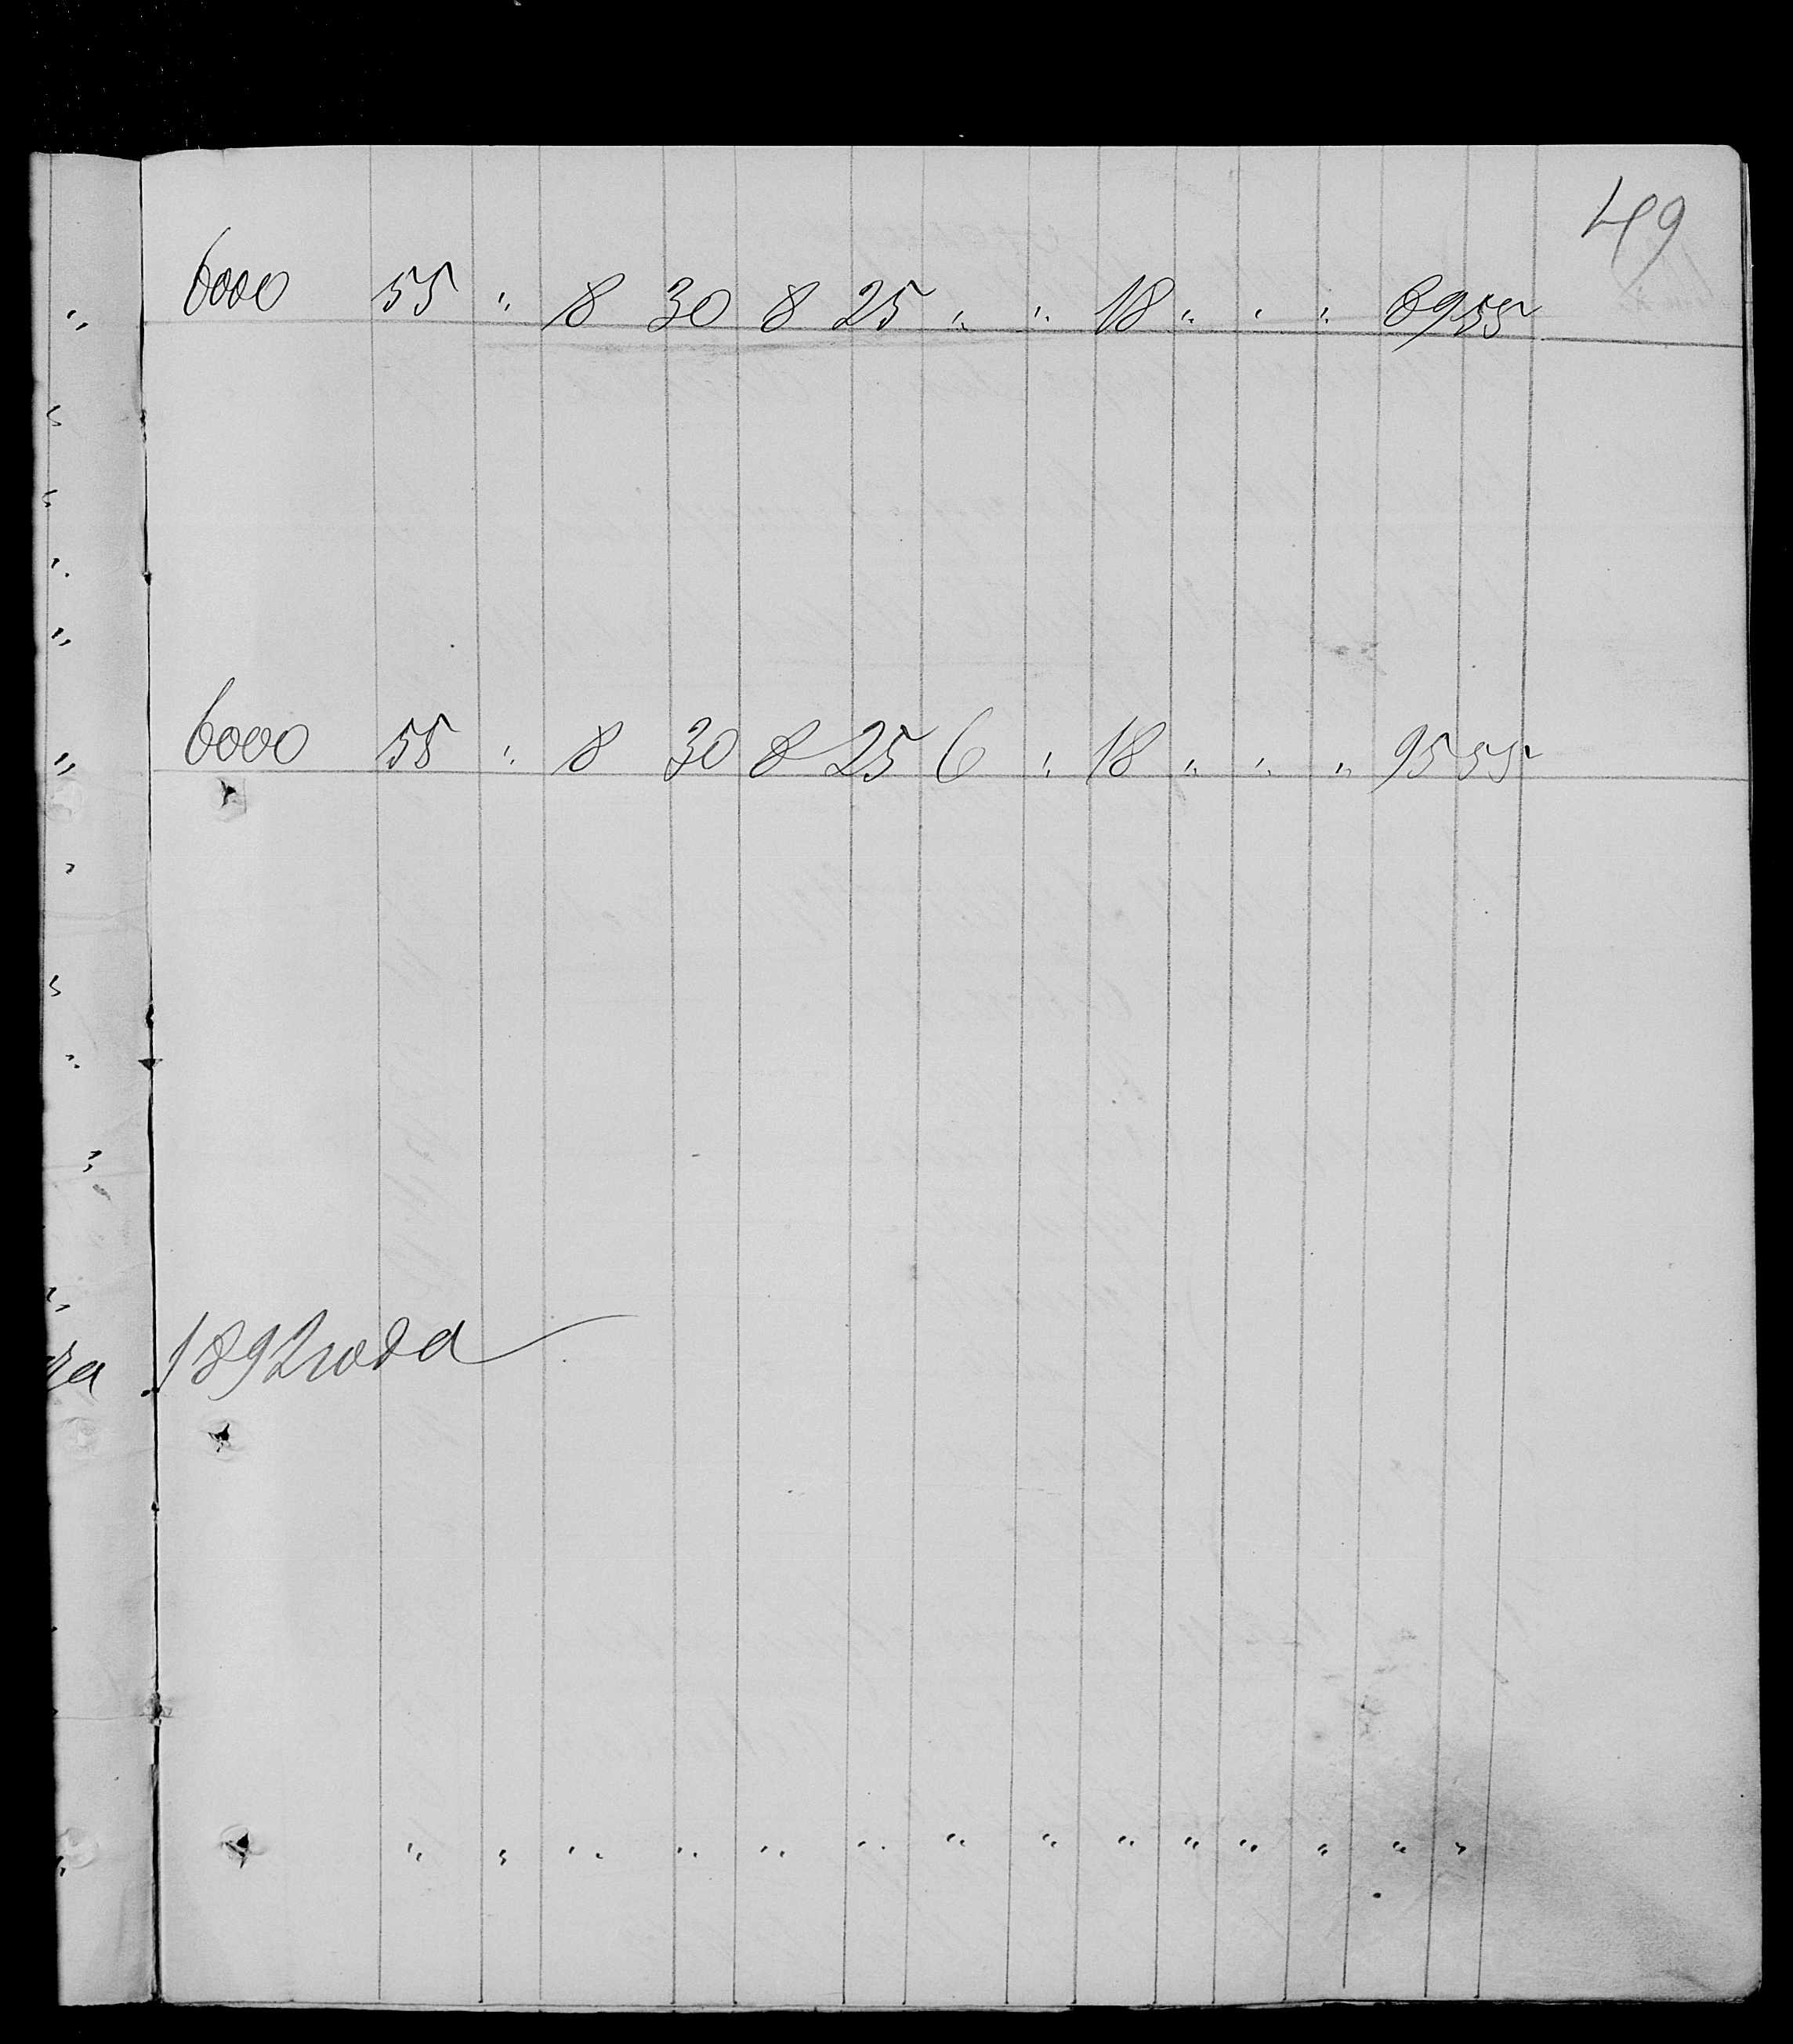 49
6000 55 " 8 30 8 25 " " 18 " " " 89 55
6000 55 " 8 30 8 25 6 " 18 " " " 95 55
1892 года
" " " " " " " " " " " " " "